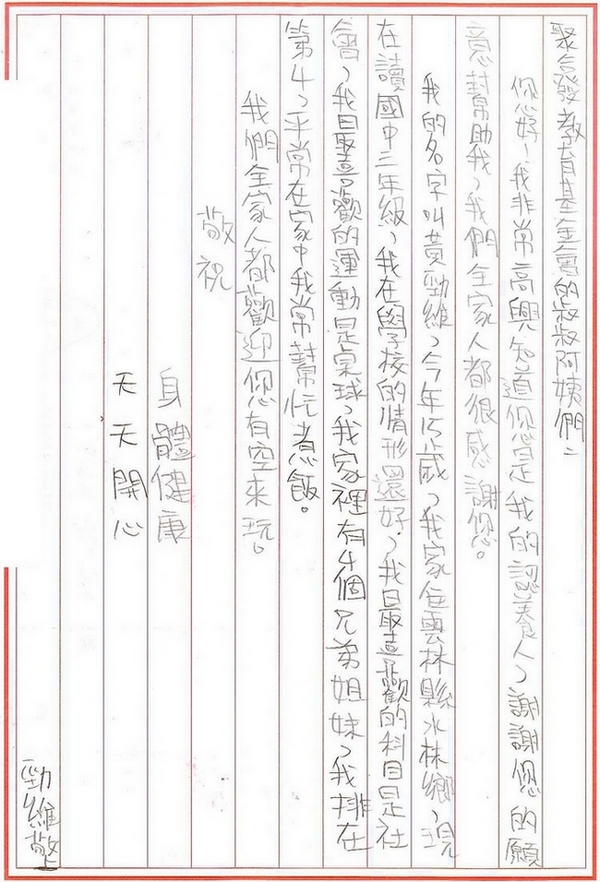 聚發教育基金會的叔叔阿姨們：
您好！我非常高興知道您是我的認養人，謝謝您的願
意幫助我，我們全家人都很感謝您。
我的名字叫黃勁維，今年15歲，我家住雲林縣水林鄉，現
在讀國中三年級，我在學校的情形還好，我最喜歡的科目是社
會，我最喜歡的運動是桌球，我家裡有4個兄弟姐妹，我排在
第4，平常在家中我常幫忙煮飯。
我們全家人都歡迎您有空來玩。
敬祝
身體健康
天天開心
勁維敬上